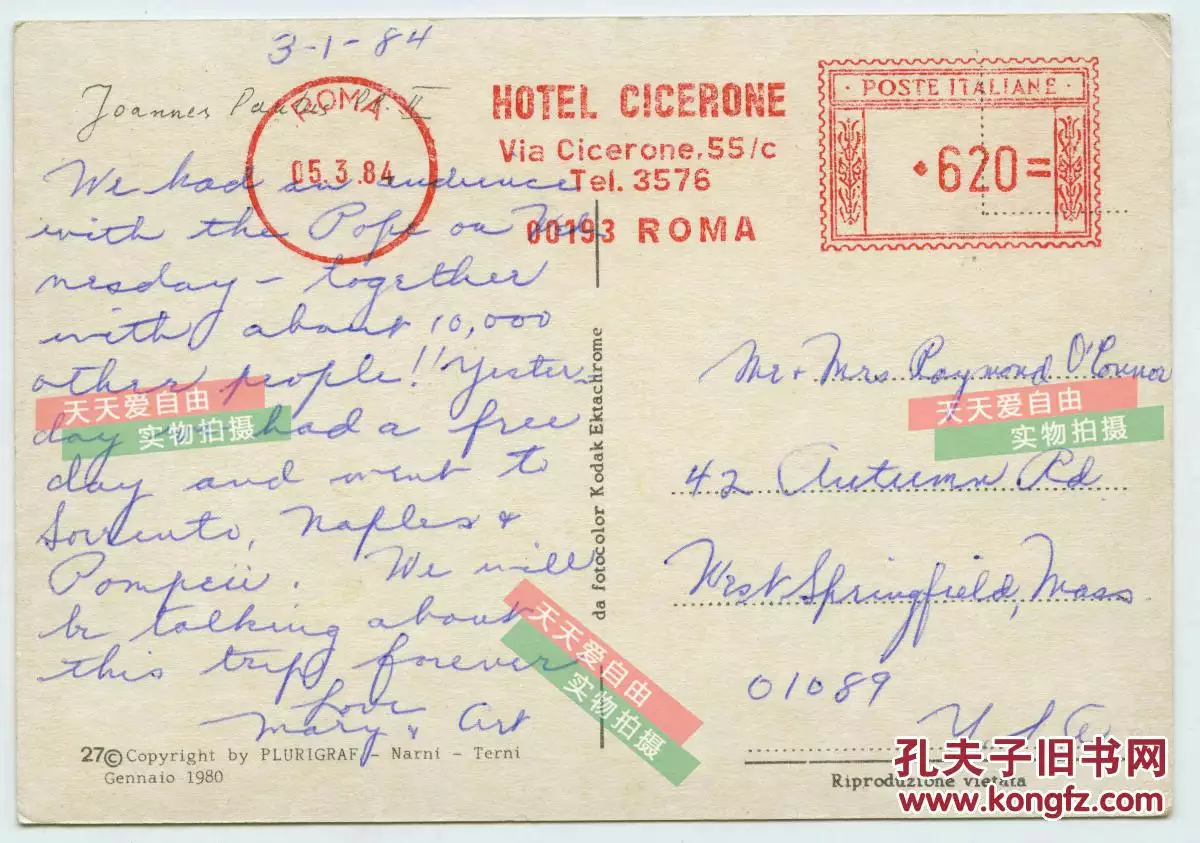 3-1-84
Joannes Paulus PP. II
ROMA
05.3.84
HOTEL CICERONE
Via Cicerone, 55/c
Tel. 3576
00193 ROMA
· POSTE ITALIANE ·
620=
We had an audience
with the Pope on Wed
nesday - together
with about 10,000
other people!! Yester-
day we had a free
day and went to
Sorrento, Naples &
Pompeii. We will
be talking about
this trip forever
Love
Mary & Art
27© Copyright by PLURIGRAF - Narni - Terni
Gennaio 1980
da fotocolor Kodak Ektachrome
Mr + Mrs Raymond O'Connor
42 Autumn Rd
West Springfield, Mass
01089
U.S.A.
Riproduzione vietata
天天爱自由
实物拍摄
天天爱自由
实物拍摄
天天爱自由
实物拍摄
孔夫子旧书网
www.kongfz.com